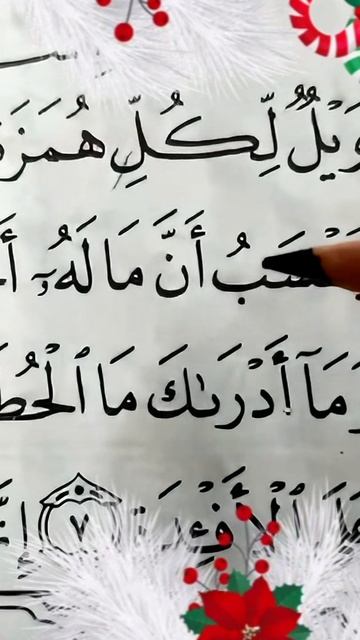 وَيْلٌ لِّكُلِّ هُمَزَةٍ
يَحْسَبُ أَنَّ مَا لَهُۥٓ
وَمَآ أَدْرَىٰكَ مَا ٱلْحُطَ
عَلَى ٱلْأَفْـِٔدَةِ ٧